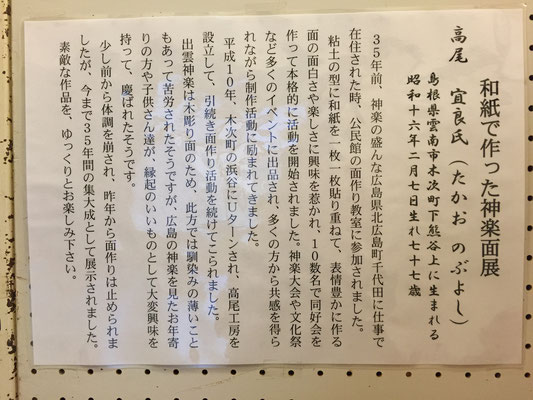 和紙で作った神楽面展
高尾　宜良氏（たかお　のぶよし）
島根県雲南市木次町下熊谷上に生まれる
昭和十六年二月七日生れ七十七歳
３５年前、神楽の盛んな広島県北広島町千代田に仕事で
在住された時、公民館の面作り教室に参加されました。
粘土の型に和紙を一枚一枚貼り重ねて、表情豊かに作る
面の面白さや楽しさに興味を惹かれ、１０数名で同好会を
作って本格的に活動を開始されました。神楽大会や文化祭
など多くのイベントに出品され、多くの方から共感を得ら
れながら制作活動に励まれてきました。
平成１０年、木次町の浜谷にＵターンされ、高尾工房を
設立して、引続き面作り活動を続けてこられました。
出雲神楽は木彫り面のため、此方では馴染みの薄いこと
もあって苦労されたそうですが、広島の神楽を見たお年寄
りの方や子供さん達が、縁起のいいものとして大変興味を
持って、慶ばれたそうです。
少し前から体調を崩され、昨年から面作りは止められま
したが、今まで３５年間の集大成として展示されました。
素敵な作品を、ゆっくりとお楽しみ下さい。